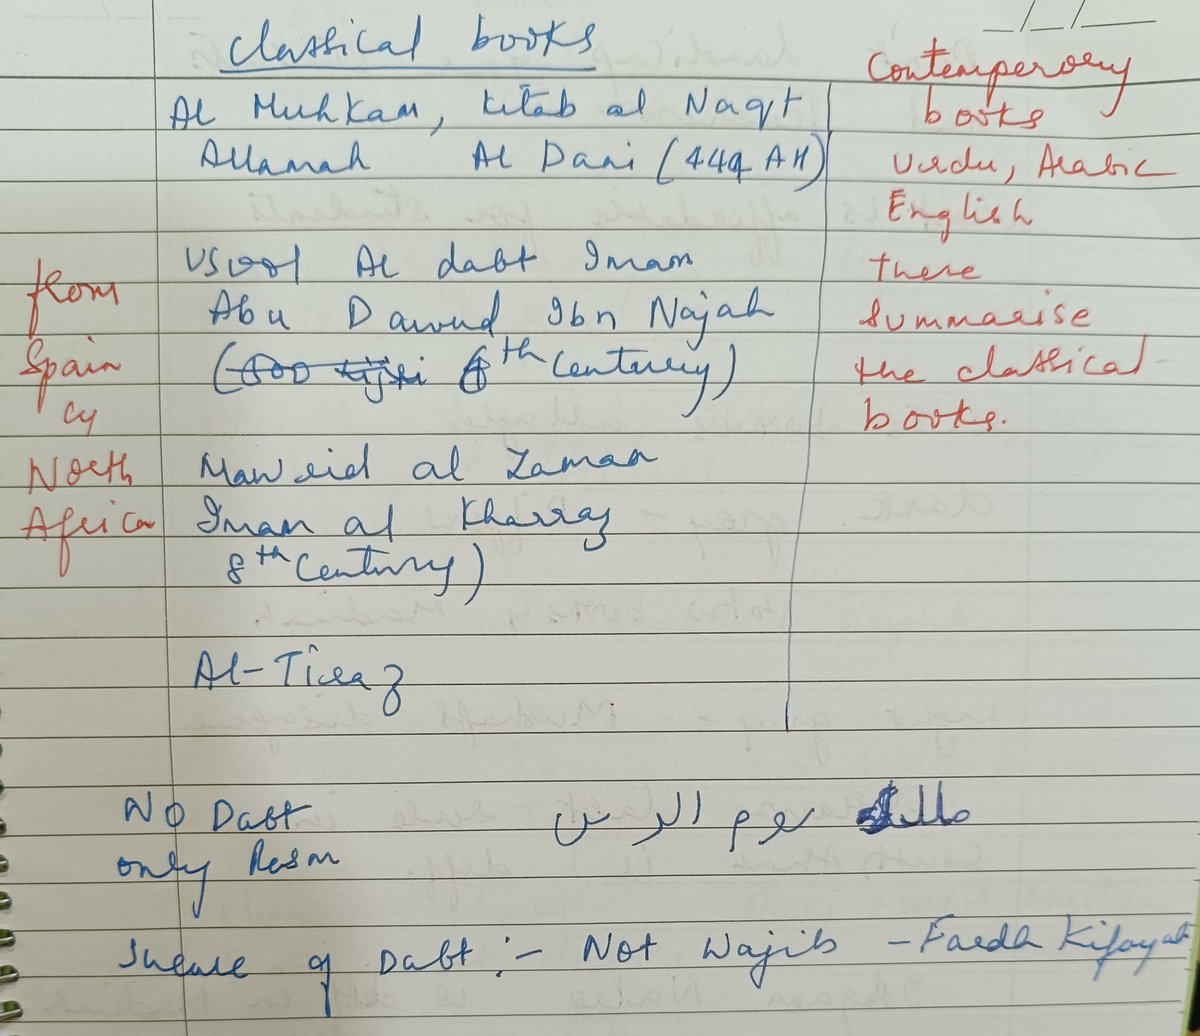 classical books
Al Muhkam, kitab al Naqt
Allamah Al Dani (444 AH)
Usool Al dabt Imam
Abu Dawud Ibn Najah
(500 hijri 6th Century)
Mawrid al Zaman
Imam al Kharraz
8th Century)
Al-Tiraz
from
Spain
cy
North
Africa
Contemperory
books
Urdu, Arabic
English
there
summarise
the classical
books.
No Dabt
only Rasm
ملك ىوم الدىں
of Dabt :- Not Wajib - Fardh Kifayah